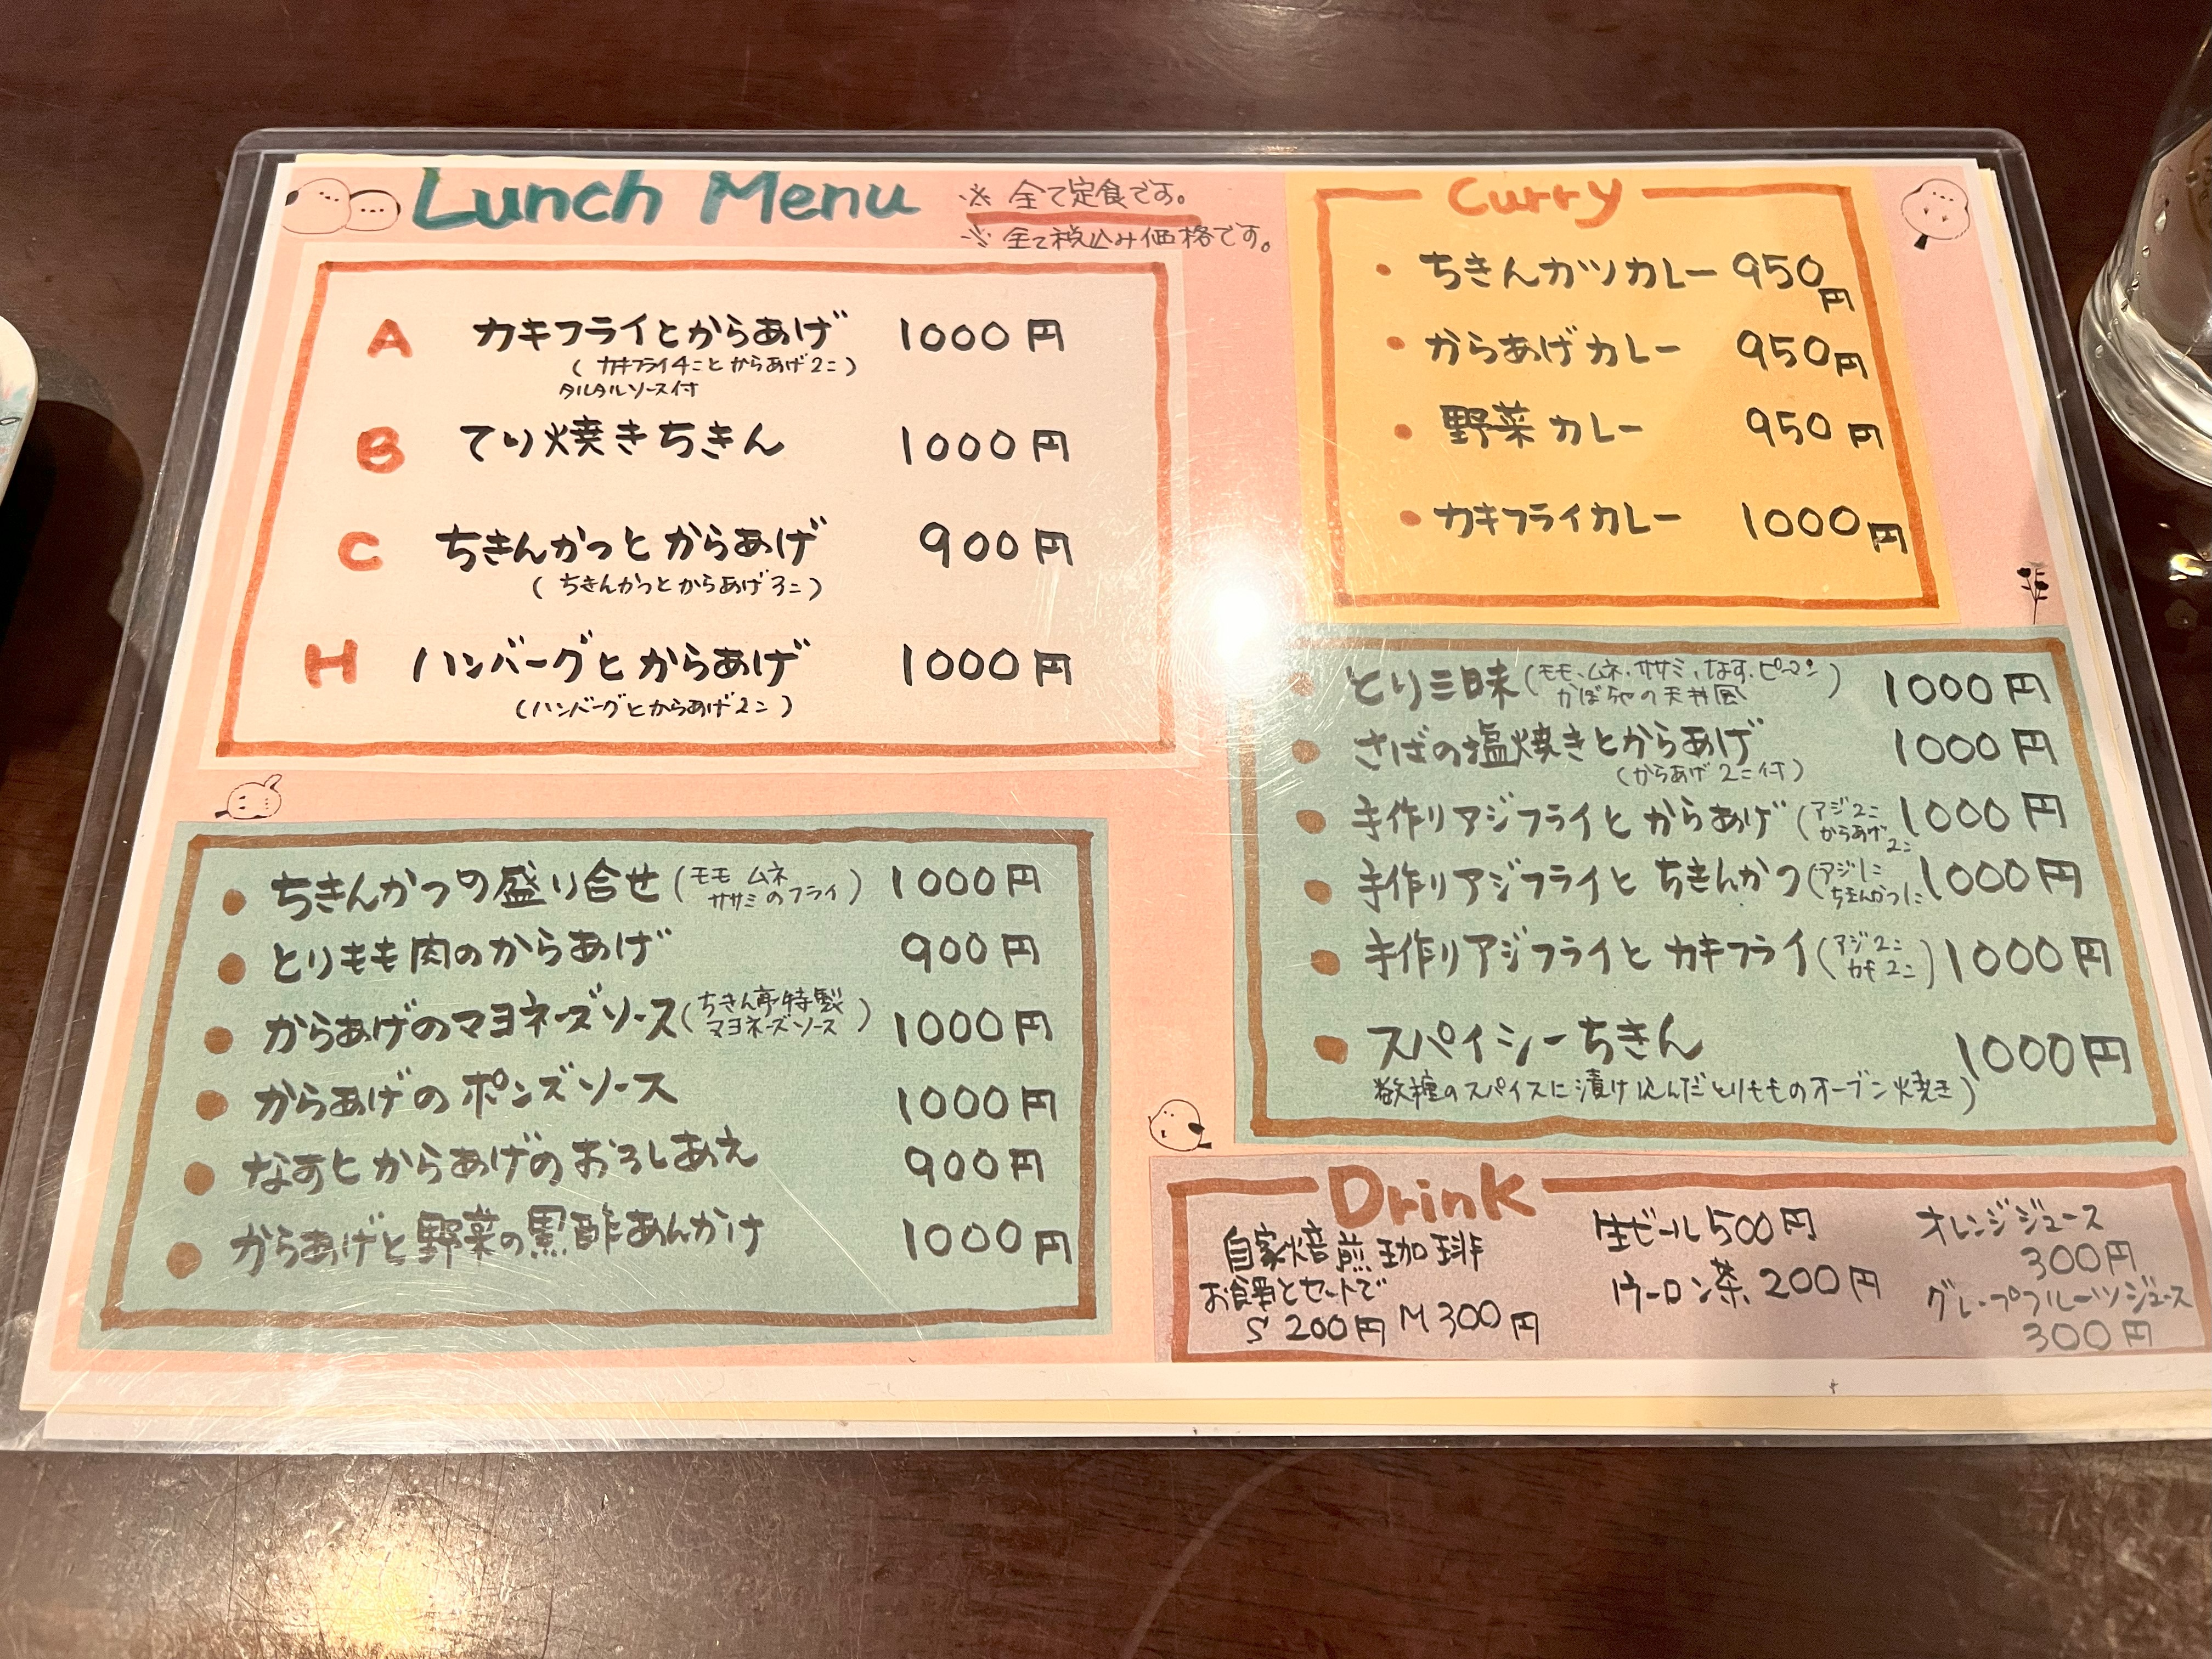 Lunch Menu
※ 全て定食です。
※ 全て税込み価格です。
A カキフライとからあげ 1000円
(カキフライ4こと からあげ2こ)
タルタルソース付
B てり焼きちきん 1000円
C ちきんかつと からあげ 900円
(ちきんかつと からあげ3こ)
H ハンバーグと からあげ 1000円
(ハンバーグとからあげ2こ)
• ちきんかつの盛り合せ(モモ ムネ ササミのフライ) 1000円
• とりもも肉のからあげ 900円
• からあげのマヨネーズソース(ちきん亭特製 マヨネーズソース) 1000円
• からあげの ポンズソース 1000円
• なすと からあげの おろしあえ 900円
• からあげと 野菜の黒酢あんかけ 1000円
Curry
• ちきんカツカレー 950円
• からあげカレー 950円
• 野菜カレー 950円
• カキフライカレー 1000円
• とり三昧(モモ、ムネ、ササミ、なす、ピーマン 1000円
かぼちゃの天丼風)
• さばの塩焼きとからあげ 1000円
(からあげ2こ付)
• 手作りアジフライと からあげ(アジ2こ からあげ2こ 1000円
• 手作りアジフライと ちきんかつ(アジ1こ ちきんかつ1こ 1000円
• 手作りアジフライと カキフライ(アジ2こ カキ2こ) 1000円
• スパイシーちきん 1000円
数種のスパイスに漬け込んだとりもものオーブン焼き)
Drink
自家焙煎珈琲
お食事とセットで
S 200円 M 300円
生ビール 500円
ウーロン茶 200円
オレンジジュース
300円
グレープフルーツジュース
300円